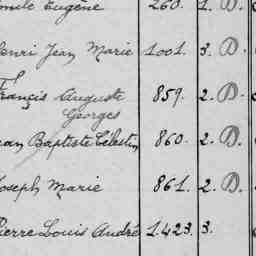 Emile Eugène 260. 1. D.
Henri Jean Marie 1001. 3. D.
François Auguste 859. 2. D.
Georges
Jean Baptiste Célestin 860. 2. D.
Joseph Marie 861. 2. D.
Pierre Louis André 1.423. 3.